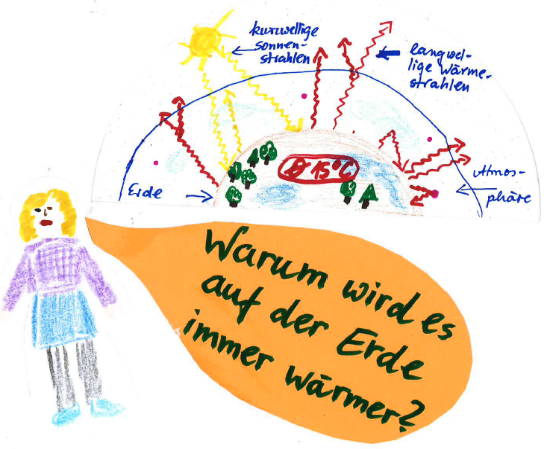 kurzwellige
sonnen-
strahlen
langwel-
lige Wärme-
strahlen
Ø 15°C
Erde
Atmos-
phäre
Warum wird es
auf der Erde
immer wärmer?